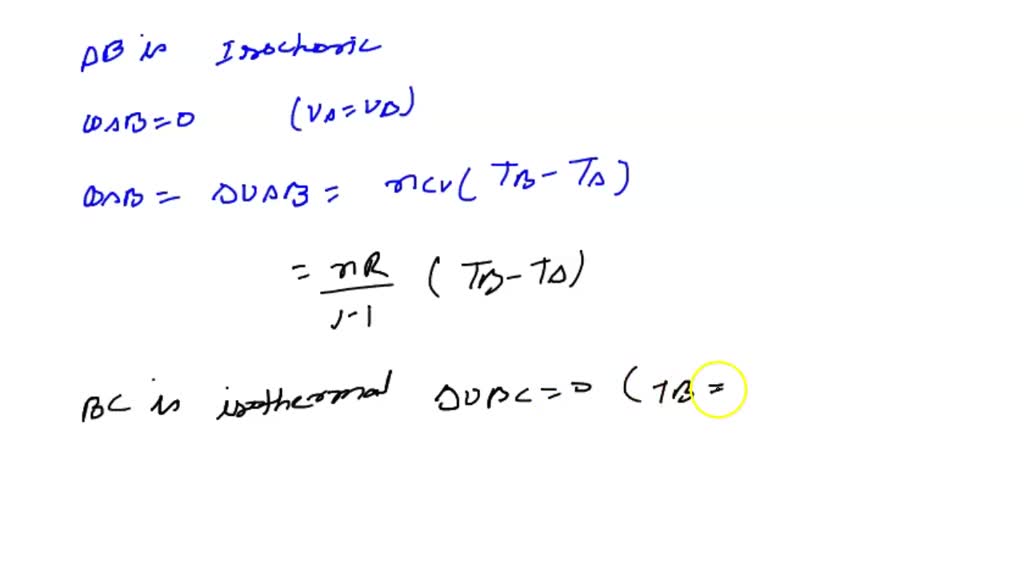 AB is Isochoric
WAB = 0 (VA = VB)
QAB = ΔUAB = nCV (TB - TA)
= nR / γ-1 (TB - TA)
BC is isothermal ΔUBC = 0 (TB =